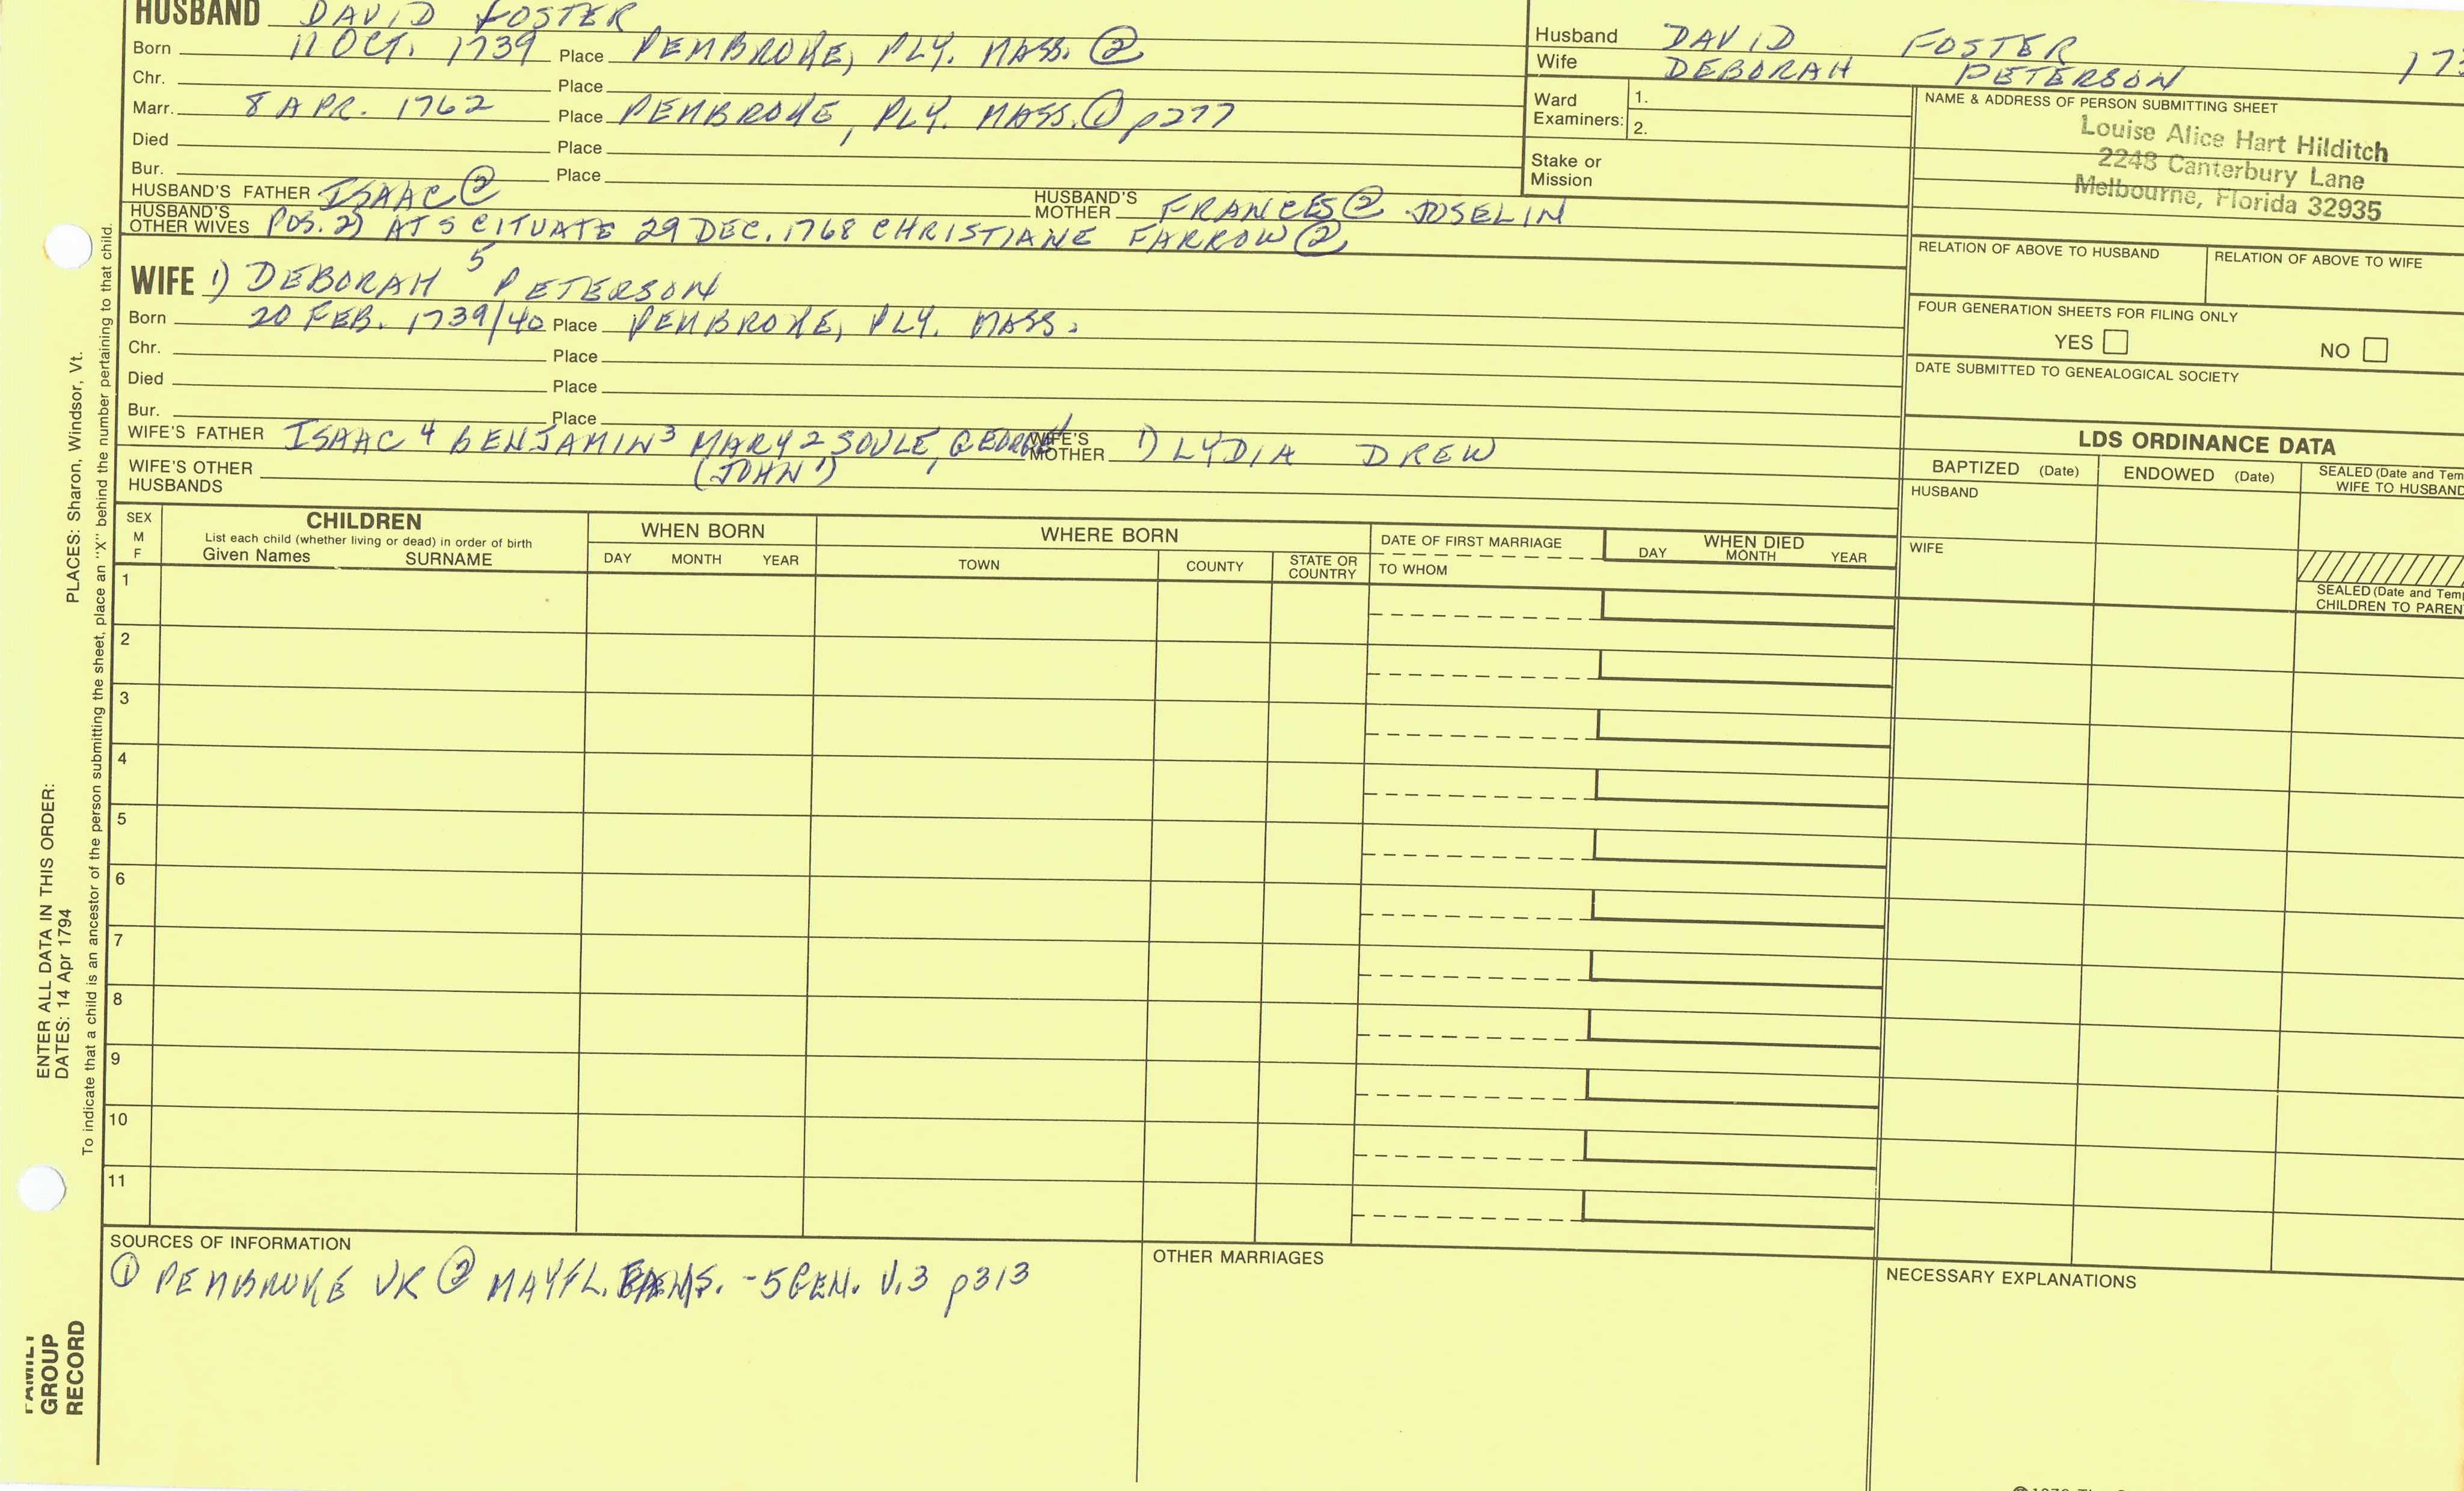 HUSBAND DAVID FOSTER
Born 11 OCT. 1739 Place PEMBROKE, PLY. MASS. ②
Chr. Place
Marr. 8 APR. 1762 Place PEMBROKE, PLY. MASS. ① p277
Died Place
Bur. Place
HUSBAND'S FATHER ISAAC ② HUSBAND'S MOTHER FRANCES ② JOSELIN
HUSBAND'S OTHER WIVES POS. 2) AT SCITUATE 29 DEC. 1768 CHRISTIANE FARROW ②
WIFE 1) DEBORAH 5 PETERSON
Born 20 FEB. 1739/40 Place PEMBROKE, PLY. MASS.
Chr. Place
Died Place
Bur. Place
WIFE'S FATHER ISAAC 4 BENJAMIN 3 MARY 2 SOULE, GEORGE 1 WIFE'S MOTHER 1) LYDIA DREW
(JOHN 1)
WIFE'S OTHER HUSBANDS
Husband DAVID FOSTER
Wife DEBORAH PETERSON
Ward Examiners: 1.
2.
Stake or Mission
NAME & ADDRESS OF PERSON SUBMITTING SHEET
Louise Alice Hart Hilditch
2248 Canterbury Lane
Melbourne, Florida 32935
RELATION OF ABOVE TO HUSBAND RELATION OF ABOVE TO WIFE
FOUR GENERATION SHEETS FOR FILING ONLY
YES NO
DATE SUBMITTED TO GENEALOGICAL SOCIETY
LDS ORDINANCE DATA
BAPTIZED (Date) ENDOWED (Date) SEALED (Date and Tem
WIFE TO HUSBAND
HUSBAND
WIFE
SEALED (Date and Tem
CHILDREN TO PAREN
SEX M F
CHILDREN
List each child (whether living or dead) in order of birth
Given Names SURNAME
WHEN BORN
DAY MONTH YEAR
WHERE BORN
TOWN COUNTY STATE OR COUNTRY
DATE OF FIRST MARRIAGE
TO WHOM
WHEN DIED
DAY MONTH YEAR
1
2
3
4
5
6
7
8
9
10
11
SOURCES OF INFORMATION
① PEMBROKE VR ② MAYFL. -5 GEN. V.3 p313
OTHER MARRIAGES
NECESSARY EXPLANATIONS
PLACES: Sharon, Windsor, Vt.
To indicate that a child is an ancestor of the person submitting the sheet, place an "X" behind the number pertaining to that child.
ENTER ALL DATA IN THIS ORDER:
DATES: 14 Apr 1794
FAMILY
GROUP
RECORD